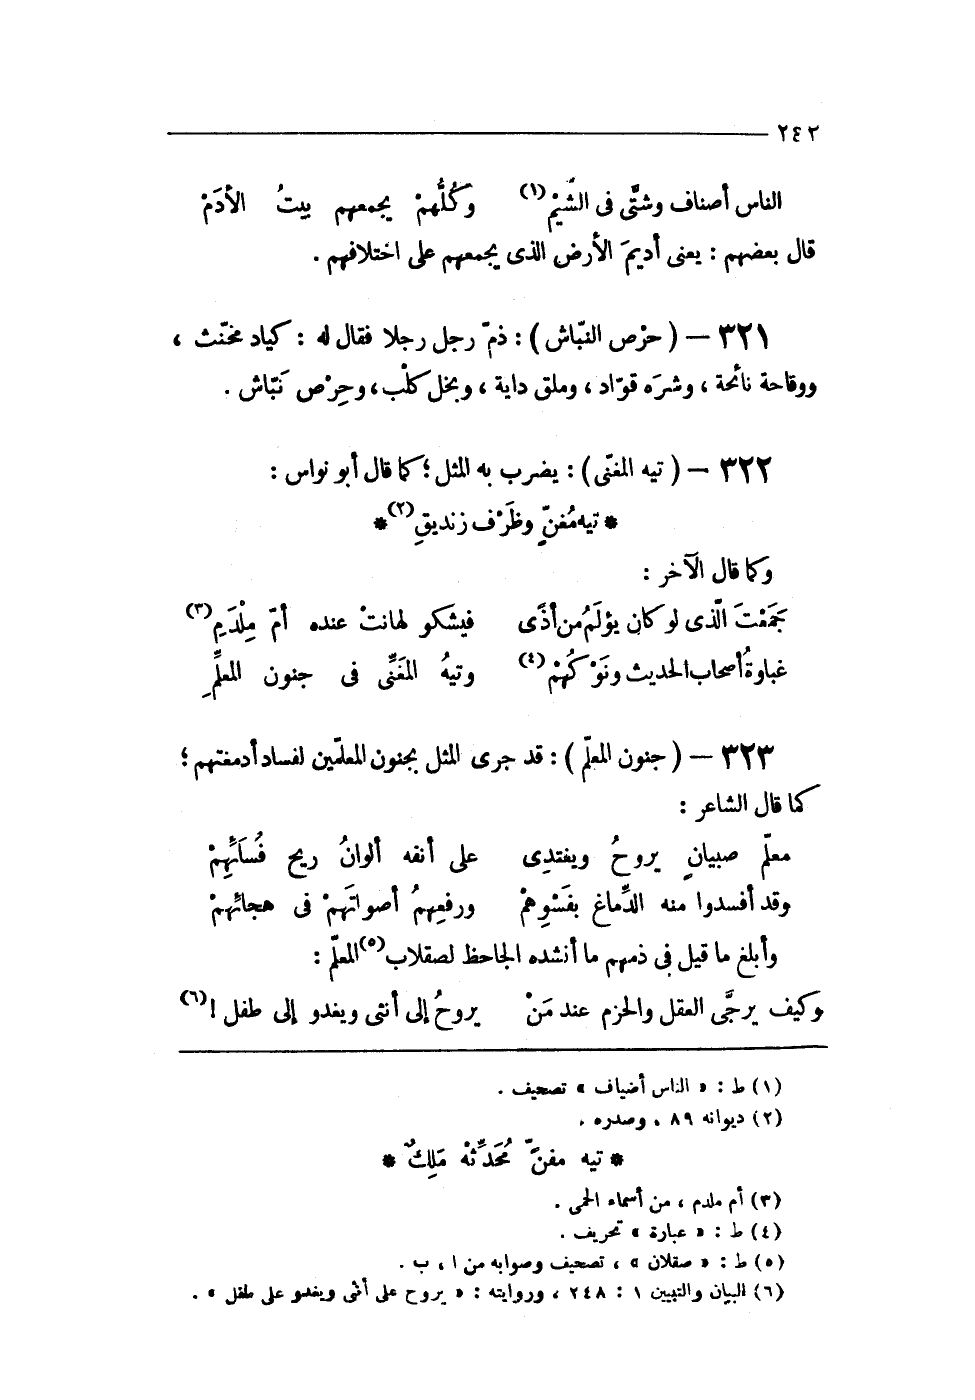 ٢٤٢
الناس أصناف وشتَّى فى الشِّيَمْ(١) وكُلُّهمْ يجمعهم بيتُ الأدَمْ
قال بعضهم : يعنى أديمَ الأرض الذى يجمعهم على اختلافهم .
٣٢١ — ( حرْص النبّاش ) : ذمّ رجل رجلا فقال له : كياد مخنّث ،
ووقاحة نائحة ، وشرَه قوّاد ، وملق داية ، وبخل كلْب، وحِرْص نَبّاش .
٣٢٢ — ( تيه المغنّى ) : يضرب به المثل ؛ كما قال أبو نواس :
* تيه مُغنٍّ وظَرْف زنديقِ(٢) *
وكما قال الآخر :
جَمَعْتَ الّذى لو كان يؤلَمُ من أذًى فيشكو لهانتْ عنده أمّ مِلْدَمِ(٣)
غباوةُ أصحاب الحديث ونَوْكُهُمْ(٤) وتيهُ المغَنِّى فى جنون المعلِّمِ
٣٢٣ — ( جنون المعلّم ) : قد جرى المثل بجنون المعلّمين لفساد أدمغتهم ؛
كما قال الشاعر :
معلّم صبيانٍ يروحُ ويغتدِى على أنفه ألوانُ ريح فُسَائِهِمْ
وقد أفسدوا منه الدِّماغ بفَسْوِهمْ ورفعِهمُ أصواتَهمْ فى هجائهمْ
وأبلغ ما قيل فى ذمهم ما أنشده الجاحظ لصقلاب(٥) المعلّم :
وكيف يرجَّى العقل والحزم عند مَنْ يروحُ إلى أنثى ويغدو إلى طفل !(٦)
(١) ط : « الناس أضياف » تصحيف .
(٢) ديوانه ٨٩ ، وصدره .
* تيه مغنٍّ مُحَدِّثهُ مَلِكٌ *
(٣) أم ملدم ، من أسماء الحمى .
(٤) ط : « عبارة » تحريف .
(٥) ط : « صقلان » ، تصحيف وصوابه من ا ، ب .
(٦) البيان والتبيين ١ : ٢٤٨ ، وروايته : « يروح على أنثى ويغدو على طفل » .